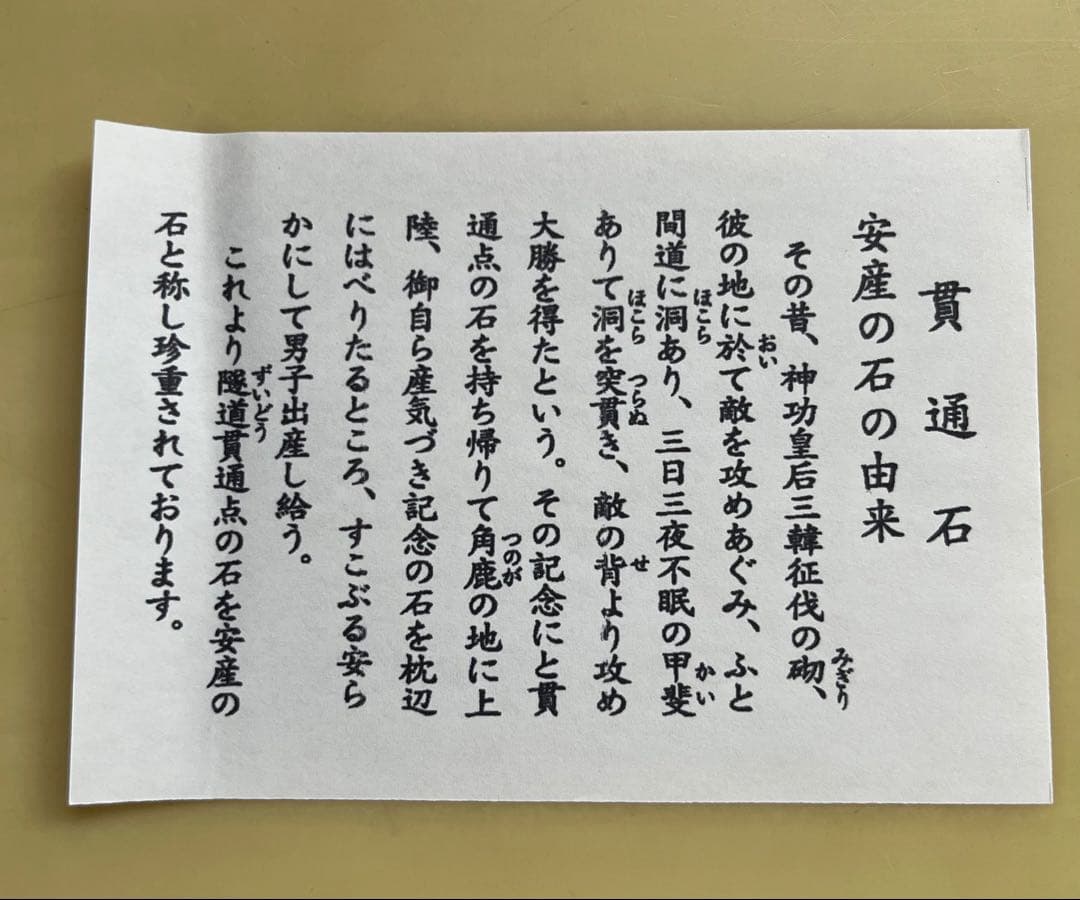 貫通石
安産の石の由来
その昔、神功皇后三韓征伐の砌、
みぎり
彼の地に於て敵を攻めあぐみ、ふと
おい
間道に洞あり、三日三夜不眠の甲斐
ほこら
かい
ありて洞を突貫き、敵の背より攻め
ほこら
つらぬ
せ
大勝を得たという。その記念にと貫
通点の石を持ち帰りて角鹿の地に上
つのが
陸、御自ら産気づき記念の石を枕辺
にはべりたるところ、すこぶる安ら
かにして男子出産し給う。
これより隧道貫通点の石を安産の
ずいどう
石と称し珍重されております。